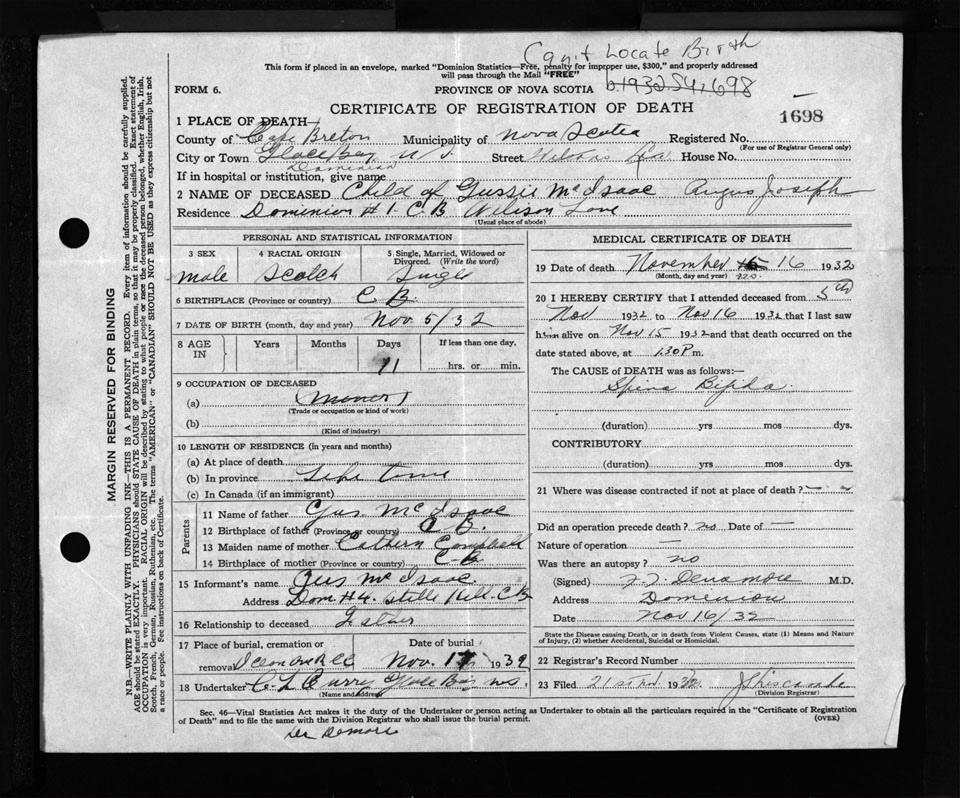 Can't Locate Birth
This form if placed in an envelope, marked "Dominion Statistics—Free, penalty for improper use, $300," and properly addressed
will pass through the Mail "FREE"
FORM 6.
PROVINCE OF NOVA SCOTIA
b.1932 54,698
CERTIFICATE OF REGISTRATION OF DEATH
1698
1 PLACE OF DEATH
County of Cape Breton Municipality of Nova Scotia Registered No.
(For use of Registrar General only)
City or Town Glace Bay N S. Street Wilsons House No.
Dominion
If in hospital or institution, give name
2 NAME OF DECEASED Child of Gussie McIsaac Angus Joseph
Residence Dominion #1. C B Wilison Lane
(Usual place of abode)
PERSONAL AND STATISTICAL INFORMATION
3 SEX 4 RACIAL ORIGIN 5 Single, Married, Widowed or Divorced. (Write the word)
male Scotch Single
6 BIRTHPLACE (Province or country) C B.
7 DATE OF BIRTH (month, day and year) Nov 5/32
8 AGE IN Years Months Days If less than one day,
11 hrs. or min.
9 OCCUPATION OF DECEASED
(a) (minor)
(Trade or occupation or kind of work)
(b)
(Kind of industry)
10 LENGTH OF RESIDENCE (in years and months)
(a) At place of death
(b) In province Life time
(c) In Canada (if an immigrant)
Parents
11 Name of father Gus McIsaac
12 Birthplace of father (Province or country) C B.
13 Maiden name of mother Cathern Campbell
14 Birthplace of mother (Province or country) C-B
15 Informant's name Gus McIsaac
Address Dom #4. C B
16 Relationship to deceased Father
17 Place of burial, cremation or Date of burial
removal Nov. 17 1932
18 Undertaker C. L Curry Glace Bay N.S.
(Name and address)
MEDICAL CERTIFICATE OF DEATH
19 Date of death November 16 1932
(Month, day and year)
20 I HEREBY CERTIFY that I attended deceased from 5th
Nov 1932 to Nov 16 1932 that I last saw
him alive on Nov 15 1932 and that death occurred on
date stated above, at 1.30 P m.
The CAUSE of DEATH was as follows:—
Spina Bifida.
(duration) yrs mos dys.
CONTRIBUTORY
(duration) yrs mos dys.
21 Where was disease contracted if not at place of death?
Did an operation precede death? no Date of —
Nature of operation —
Was there an autopsy? no
(Signed) M.D.
Address Dominion
Date Nov 16/32
State the Disease causing Death, or in death from Violent Causes, state (1) Means and Nature of Injury, (2) whether Accidental, Suicidal or Homicidal.
22 Registrar's Record Number
23 Filed 21st Nov 1932
(Division Registrar)
Sec. 46—Vital Statistics Act makes it the duty of the Undertaker or person acting as Undertaker to obtain all the particulars required in the "Certificate of Registration
of Death" and to file the same with the Division Registrar who shall issue the burial permit.
(OVER)
MARGIN RESERVED FOR BINDING
N.B.—WRITE PLAINLY WITH UNFADING INK—THIS IS A PERMANENT RECORD. Every item of information should be carefully supplied.
AGE should be stated EXACTLY. PHYSICIANS should STATE CAUSE OF DEATH in plain terms, so that it may be properly classified. Exact statement of
OCCUPATION is very important. RACIAL ORIGIN will be described by stating to what people or race the deceased person belonged, whether English, Irish,
Scotch, French, German, Russian, Ruthenian, etc. The terms "AMERICAN" or "CANADIAN" SHOULD NOT BE USED as they express citizenship but not
a race or people. See instructions on back of Certificate.